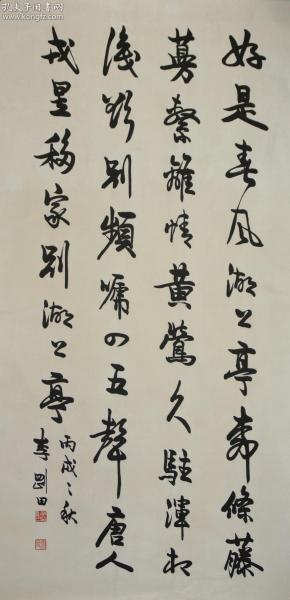 孔夫子旧书网
www.kongfz.com
好是春风湖上亭柳條藤
蔓繫離情黄鶯久駐渾相
識欲别頻嗁四五聲唐人
戎昱移家别湖上亭
丙戌之秋
李剛田